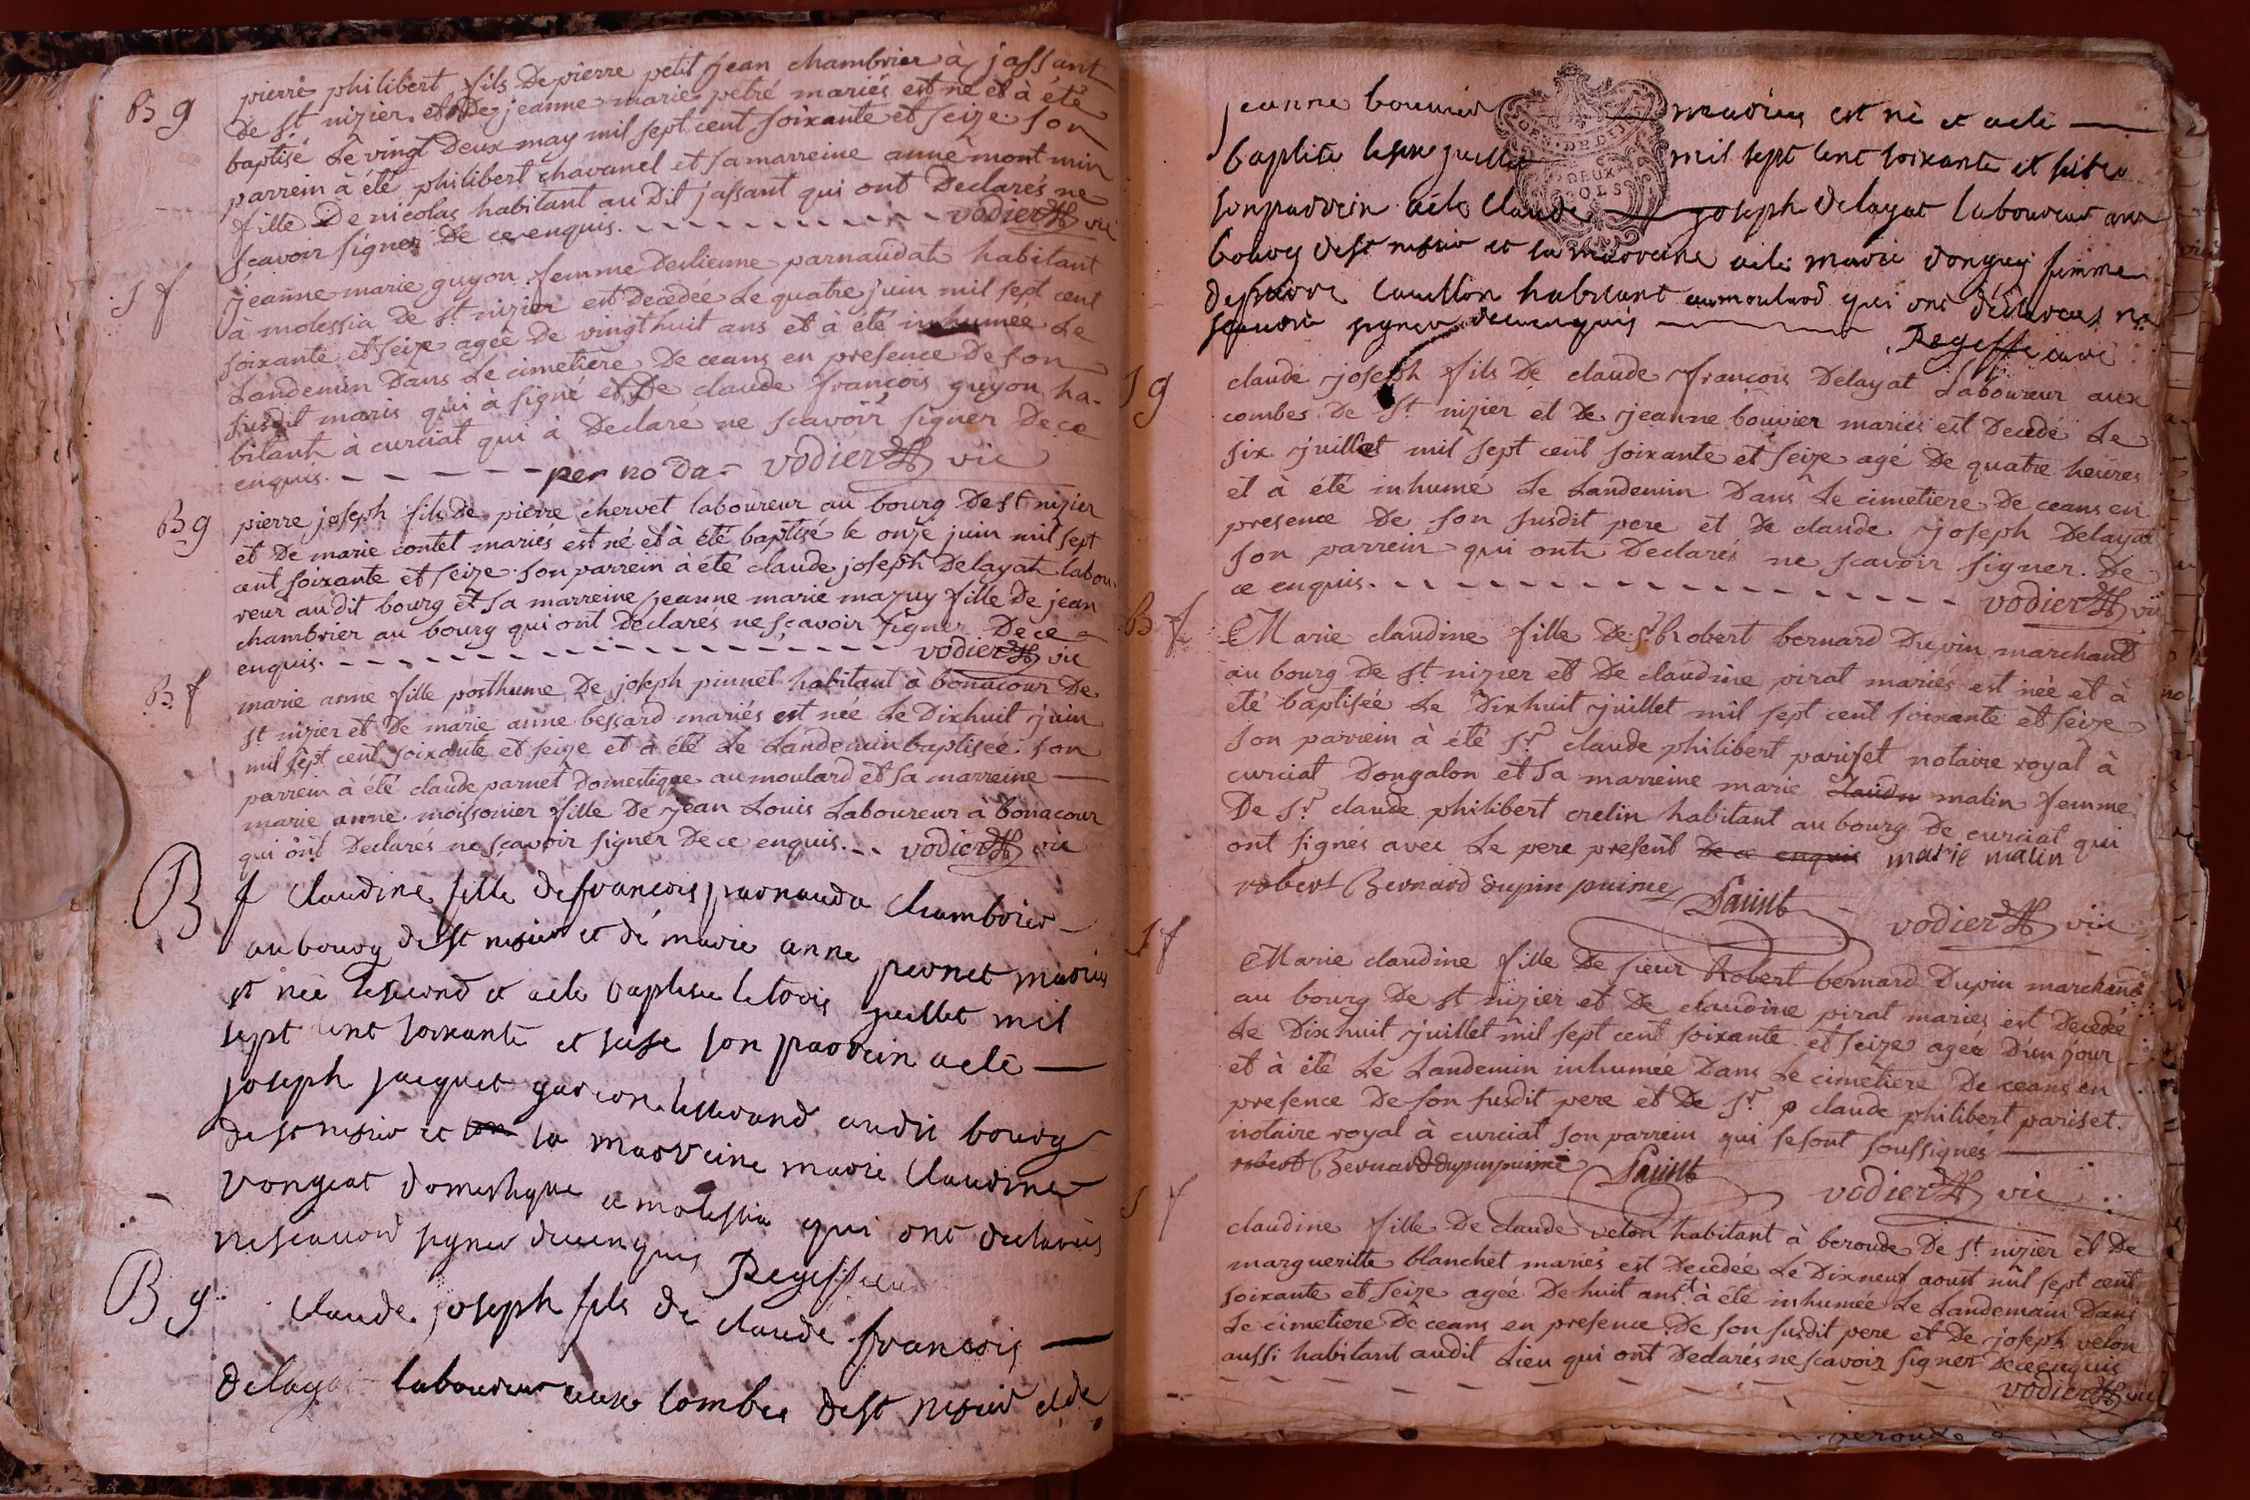 B g
pierre philibert fils De pierre petit jean chambrier à jassant
De st nizier et De jeanne marie petré mariés est né et à été
baptisé Le vingt Deux may mil sept cent soixante et seize son
parrein à été philibert chavanel et sa marreine anne mont min
fille De nicolas habitant au Dit jassant qui ont Declarés ne
scavoir signer De ce enquis. vodier vic
S f
jeanne marie guyon femme Destienne parnaudat habitant
à molessia De st nizier est Decedée Le quatre juin mil sept cent
soixante et seize agée de vingt huit ans et à été inhumée Le
Landemin Dans Le cimetiere De ceans en presence De son
susdit maris qui à signé et De claude françois guyon ha-
bitant à curciat qui à Declaré ne scavoir signer De ce
enquis. per no da = vodier vic
B g
pierre joseph fils de pierre chervet laboureur au bourg De st nizier
et De marie contet mariés est né et à été baptisé le onze juin mil sept
cent soixante et seize. son parrein à été claude joseph Delayat labou-
reur au dit bourg et sa marreine jeanne marie mazuy fille De jean
chambrier au bourg qui ont Declarés ne scavoir signer De ce
enquis. vodier vic
B f
marie anne fille posthume De joseph pinnet habitant à bonacour De
st nizier et De marie anne bessard mariés est née Le Dixhuit juin
mil sept cent soixante et seize et à été Le Landemin baptisée. son
parrein à été claude parnet Domestique au moulard et sa marreine
marie anne moissonier fille De jean Louis Laboureur à bonacour
qui ont Declarés ne scavoir signer De ce enquis. vodier vic
B f claudine fille de francois parnauda chambrier
au bourg de st nisier et de marie anne pernet mariés
et née le second et a ete baptisee le trois juillet mil
sept cent soixante et seise son parrein a ete
joseph jacquet garcon tisserand audit bourg
de st nisier et son sa marreine marie claudine
vongeat domestique a molessia qui ont declarés
ne scavoir signer de ce enquis
B g claude joseph fils de claude francois
delayat laboureur aux combes de st nisier et de
jeanne bouvier mariés est né et a ete
baptisé le six juillet mil sept cent soixante et seise
son parrein a ete claude joseph delayat laboureur au
bourg de st nisier et sa marreine a ete marie vongey femme
de pierre cauillon habitant au moulard qui ont declarés ne
scavoir signer de ce enquis curé
S g
claude joseph fils De claude françois Delayat Laboureur aux
combes De st nizier et De jeanne bouvier mariés est Decedé Le
six juillet mil sept cent soixante et seize agé De quatre heures
et à été inhumé Le Landemin Dans Le cimetiere De ceans en
presence De son susdit pere et De claude joseph Delayat
son parrein qui ont Declarés ne scavoir signer. De
ce enquis. vodier vic
B f
Marie claudine fille De sr Robert bernard Dupin marchand
au bourg De st nizier et De claudine pirat mariés est née et à
été baptisée Le Dixhuit juillet mil sept cent soixante et seize
son parrein à été sr claude philibert pariset notaire royal à
curciat Dongalon et sa marreine marie claudi matin femme
De sr claude philibert cretin habitant au bourg De curciat qui
ont signés avec Le pere present de ce enquis marie matin
robert Bernard dupin puiné vodier vic
S f
Marie claudine fille De sieur Robert bernard Dupin marchand
au bourg De st nizier et De claudine pirat mariés est Decedée
Le Dix huit juillet mil sept cent soixante et seize agée D'un jour
et à été Le Landemin inhumée Dans Le cimetiere De ceans en
presence De son susdit pere et De sr claude philibert pariset.
notaire royal à curciat son parrein qui se sont soussignés
robert Bernard dupin puiné vodier vic
S f
claudine fille De claude velon habitant à beroude De st nizier et De
margueritte blanchet mariés est Decedée Le Dixneuf aoust mil sept cent
soixante et seize agée De huit ans et à été inhumée Le Landemain Dans
Le cimetiere De ceans en presence De son susdit pere et De joseph velon
aussi habitant audit Lieu qui ont Declarés ne scavoir signer De ce enquis
vodier vic